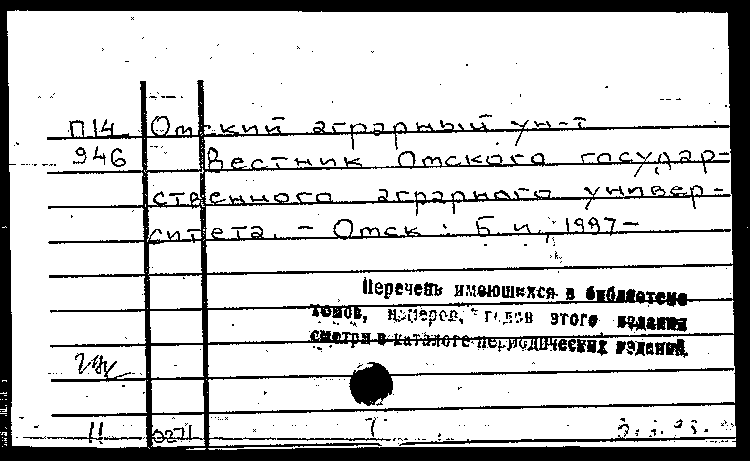 П14 Омский аграрный ун-т
946 Вестник Омского государ-
ственного аграрного универ-
ситета. - Омск : Б. и., 1997-
Перечень имеющихся в библиотеке
томов, номеров, годов этого издания
смотри в каталоге периодических изданий.
11 0271